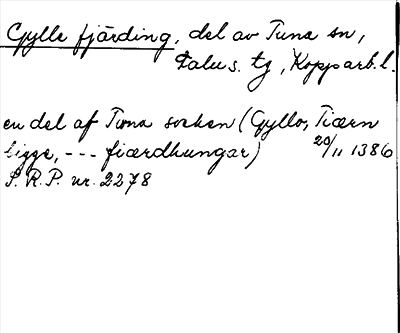 Gylle fjärding, del av Tuna sn,
Falu s. tg, Kopparb. l.
en del af Tuna socken (Gyllo, Tiærn
bigge, --- fiærdhungar) 20/11 1386
S. R. P. nr. 2278